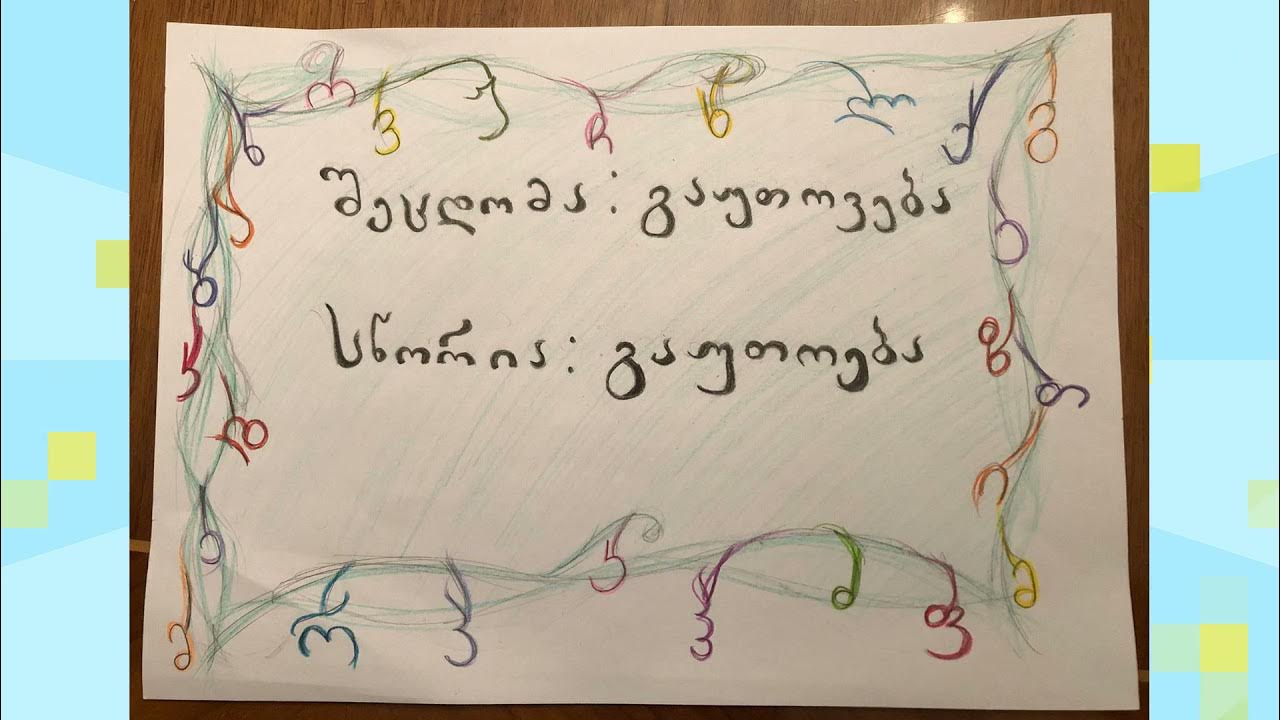 შეცდომა: გაუთოვება
სწორია: გაუთოება